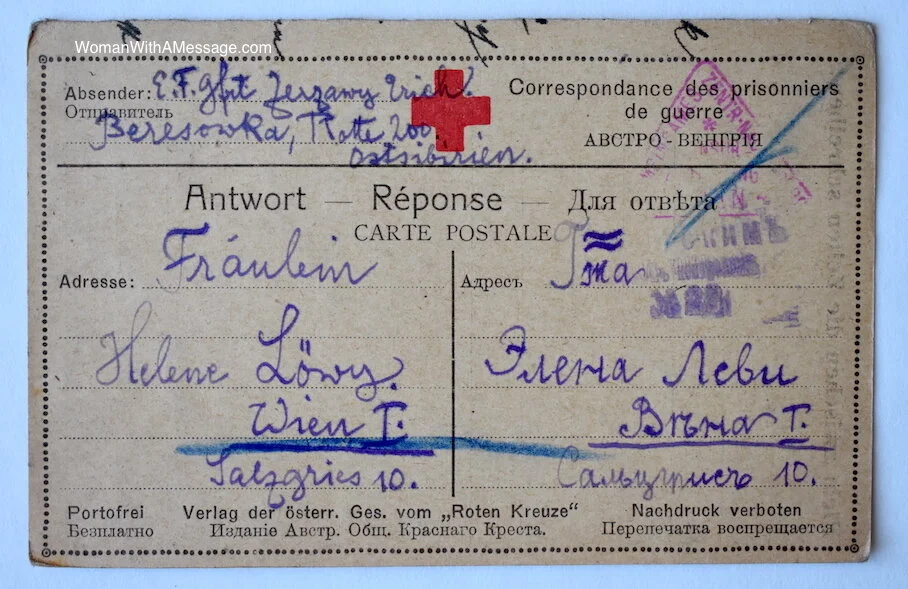 WomanWithAMessage.com
Absender: E. F. Jeszawy Erich
Отправитель
Beresowka, Rotte 200.
Ostsibirien.
Correspondance des prisonniers
de guerre
АВСТРО - ВЕНГРІЯ
Antwort — Réponse — Для отвѣта
CARTE POSTALE
Adresse: Fräulein
Helene Löwy.
Wien I.
Salzgries 10.
Адресъ Гжа
Элена Леви
Вѣна I.
Сальцгрисъ 10.
Portofrei
Безплатно
Verlag der österr. Ges. vom „Roten Kreuze“
Изданіе Австр. Общ. Краснаго Креста.
Nachdruck verboten
Перепечатка воспрещается